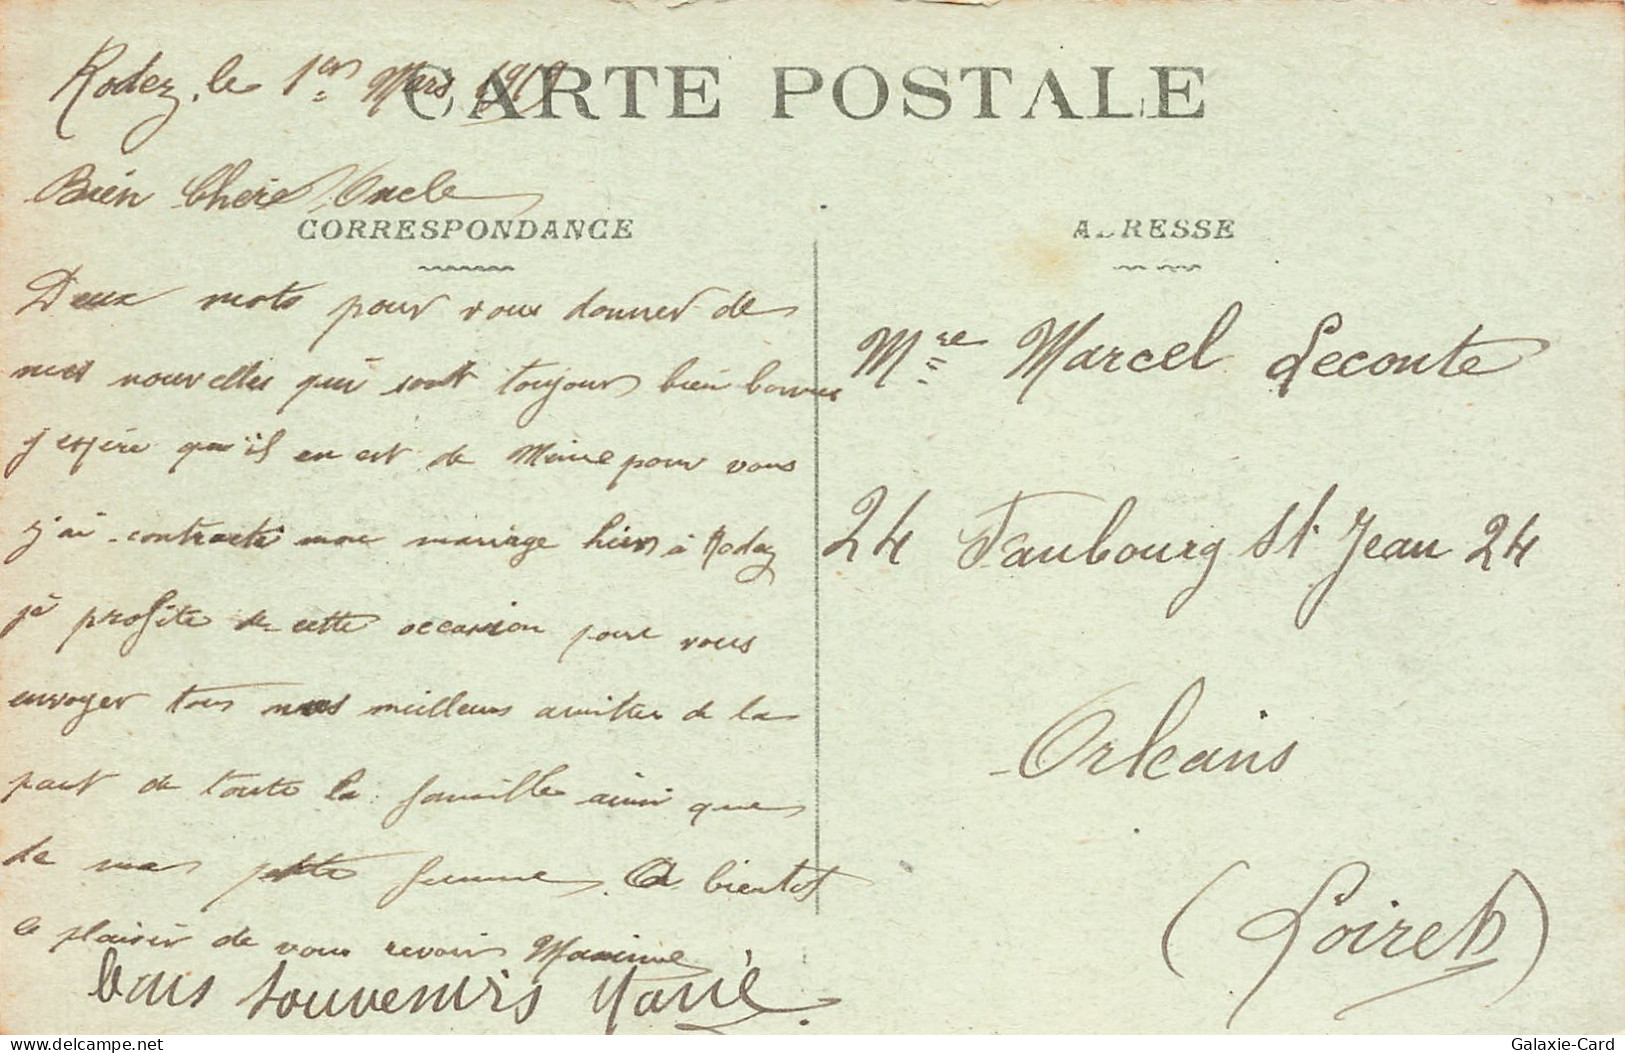 CARTE POSTALE
Rodez, le 1er Mars 1919
Bien Chere Oncle
CORRESPONDANCE
Deux mots pour vous donner de
mes nouvelles qui sont toujours bien bonnes
j'espère qu'il en est de Même pour vous
j'ai contracté mon mariage hier à Rodez
je profite de cette occasion pour vous
envoyer tous nos meilleurs amitiés de la
part de toute la famille ainsi que
de ma petite femme. A bientot
le plaisir de vous revoir Maxime
bons souvenirs Marie.
ADRESSE
Mre Marcel Leconte
24 Faubourg St Jean 24
Orleans
(Loiret)
delcampe.net
Galaxie-Card